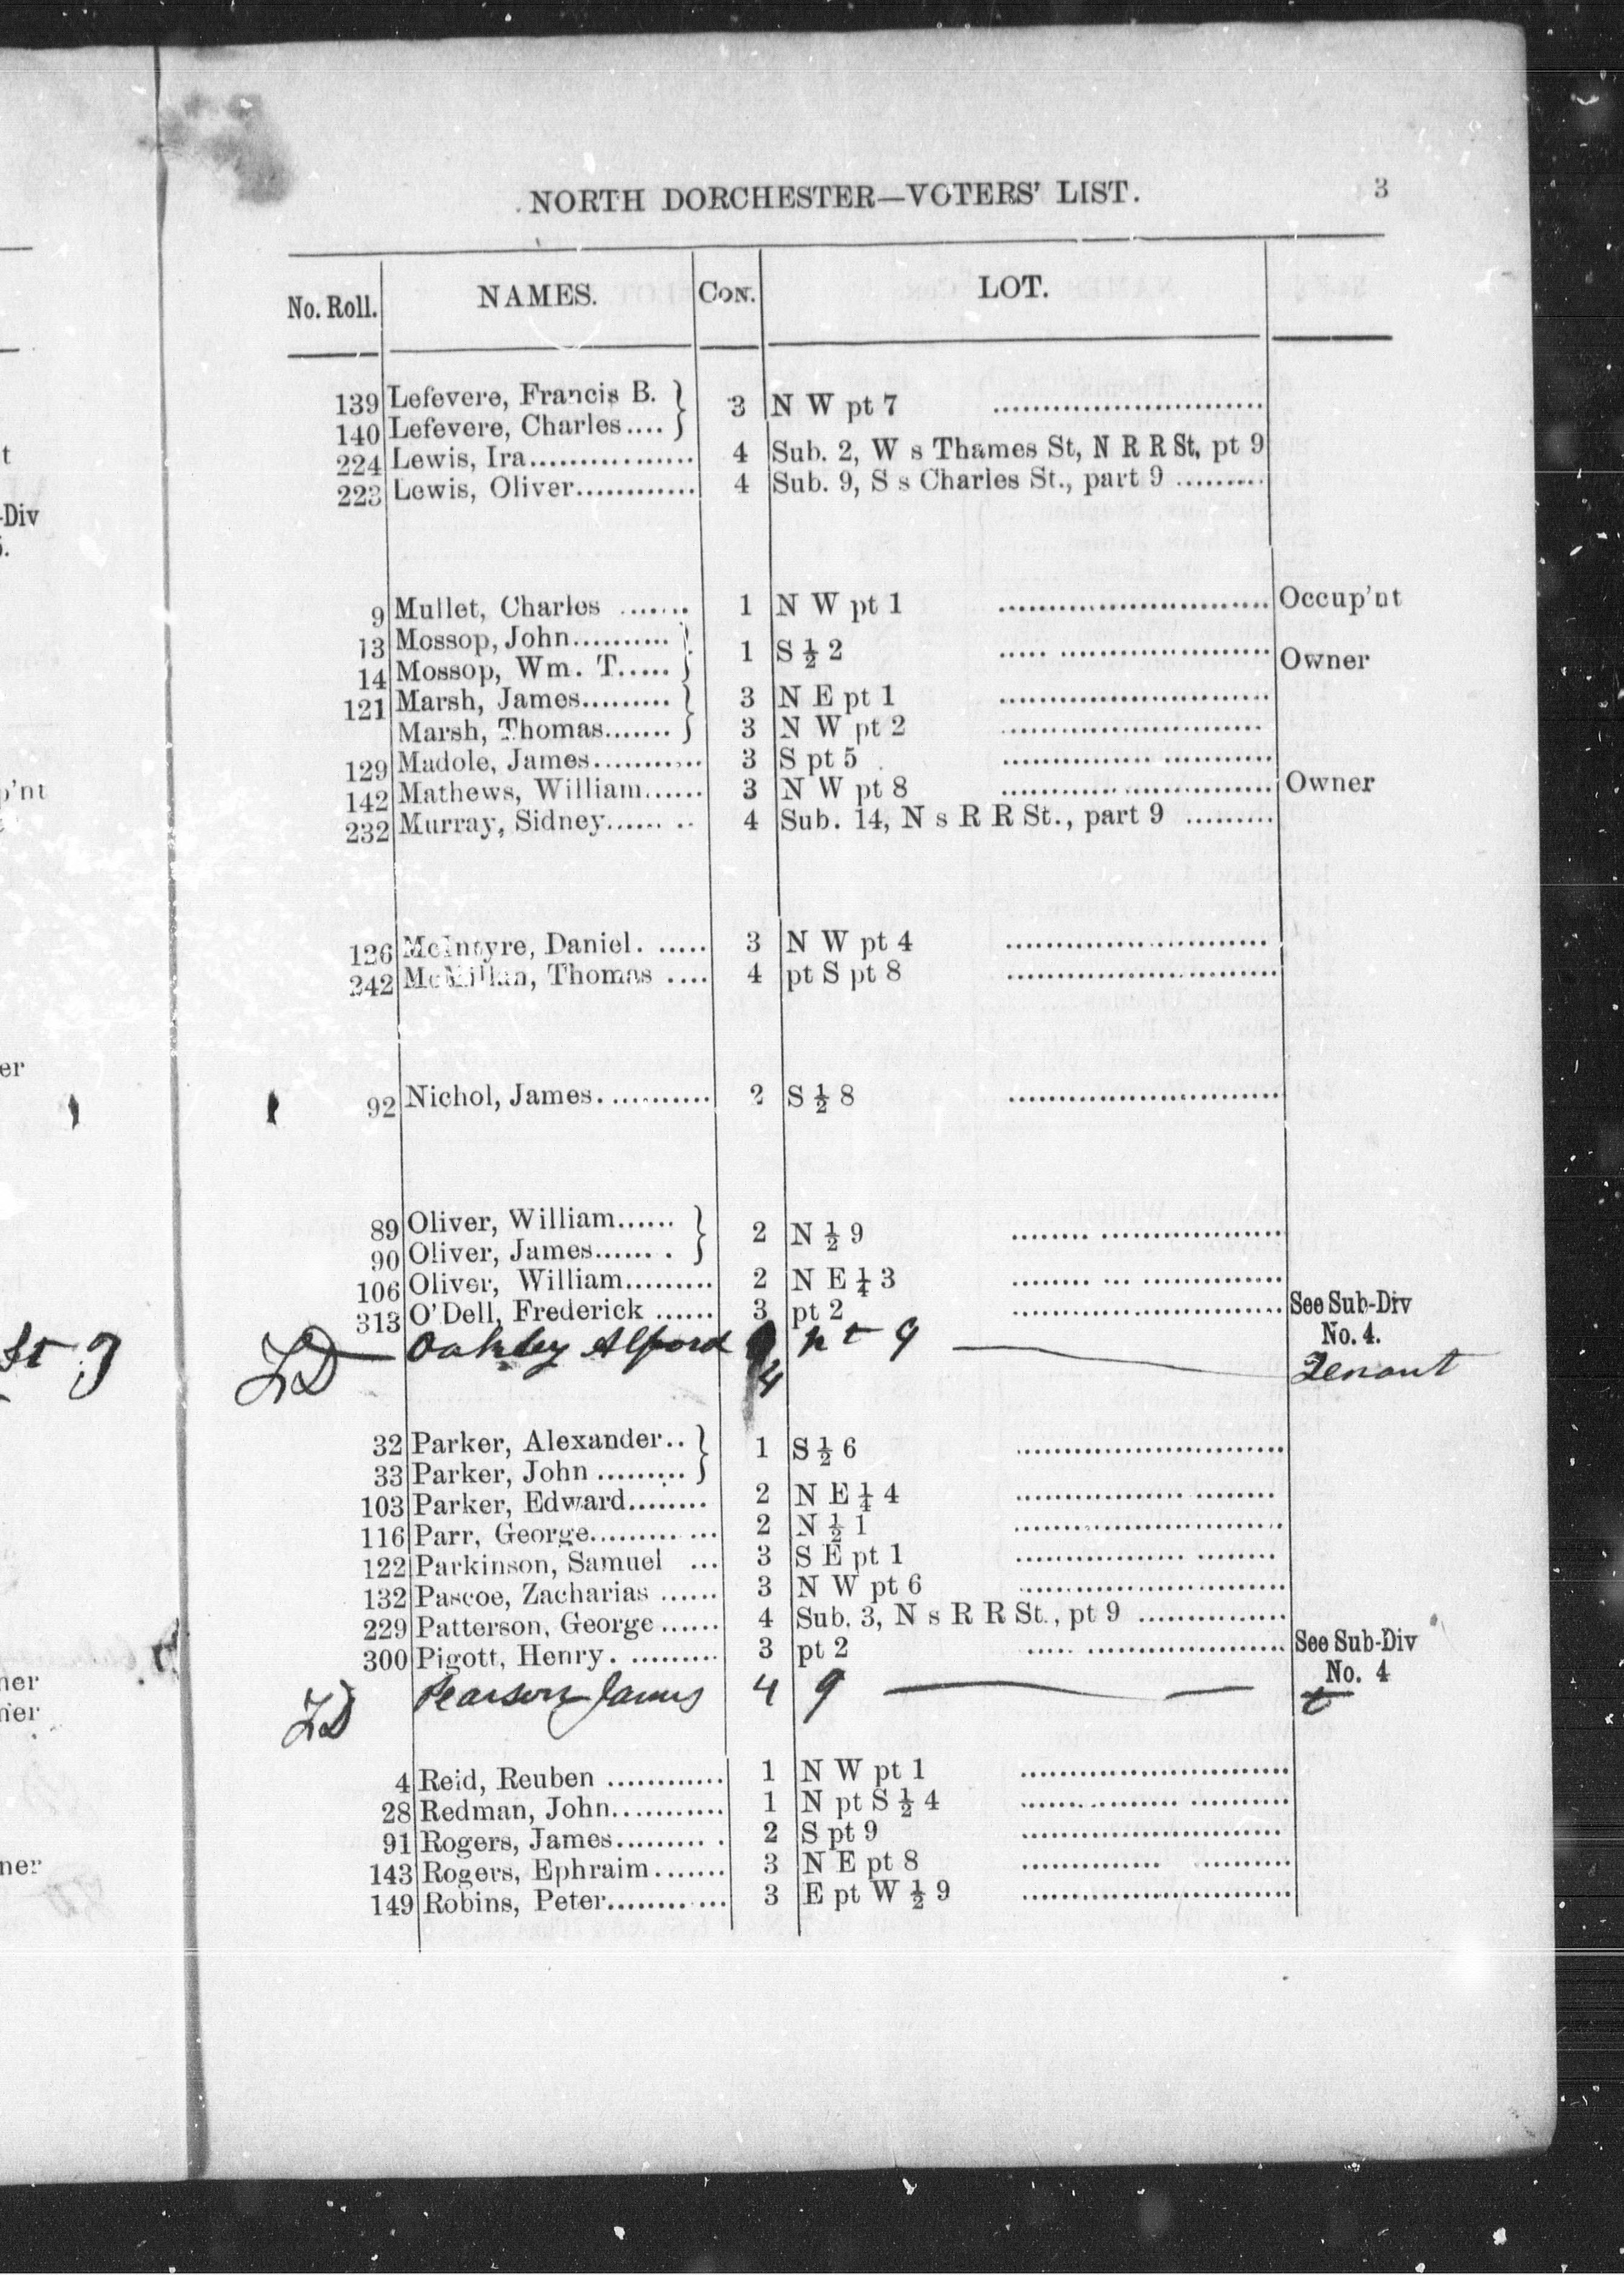 NORTH DORCHESTER—VOTERS' LIST. 3
No. Roll. NAMES. CON. LOT.
139 Lefevere, Francis B. } 3 N W pt 7 ..........
140 Lefevere, Charles.... }
224 Lewis, Ira................ 4 Sub. 2, W s Thames St, N R R St, pt 9
223 Lewis, Oliver............ 4 Sub. 9, S s Charles St., part 9 .........
9 Mullet, Charles ....... 1 N W pt 1 .......... Occup'nt
13 Mossop, John.......... } 1 S ½ 2 .......... Owner
14 Mossop, Wm. T..... }
121 Marsh, James......... } 3 N E pt 1 ..........
Marsh, Thomas....... } 3 N W pt 2 ..........
129 Madole, James........... 3 S pt 5 ..........
142 Mathews, William...... 3 N W pt 8 .......... Owner
232 Murray, Sidney...... .. 4 Sub. 14, N s R R St., part 9 .........
126 McIntyre, Daniel. ..... 3 N W pt 4 ..........
242 McMillan, Thomas .... 4 pt S pt 8 ..........
92 Nichol, James........... 2 S ½ 8 ..........
89 Oliver, William...... } 2 N ½ 9 ..........
90 Oliver, James...... . }
106 Oliver, William......... 2 N E ¼ 3 ..........
313 O'Dell, Frederick ...... 3 pt 2 .......... See Sub-Div
No. 4.
Oakley Alford 4 pt 9 Tenant
32 Parker, Alexander.. } 1 S ½ 6 ..........
33 Parker, John ......... }
103 Parker, Edward........ 2 N E ¼ 4 ..........
116 Parr, George......... ... 2 N ½ 1 ..........
122 Parkinson, Samuel ... 3 S E pt 1 ..........
132 Pascoe, Zacharias ...... 3 N W pt 6 ..........
229 Patterson, George ...... 4 Sub. 3, N s R R St., pt 9 ...............
300 Pigott, Henry. ......... 3 pt 2 .......... See Sub-Div
No. 4
Pearson James 4 9 t
4 Reid, Reuben ............ 1 N W pt 1 ..........
28 Redman, John........... 1 N pt S ½ 4 ..........
91 Rogers, James......... . 2 S pt 9 ..........
143 Rogers, Ephraim....... 3 N E pt 8 ..........
149 Robins, Peter......... ... 3 E pt W ½ 9 ..........